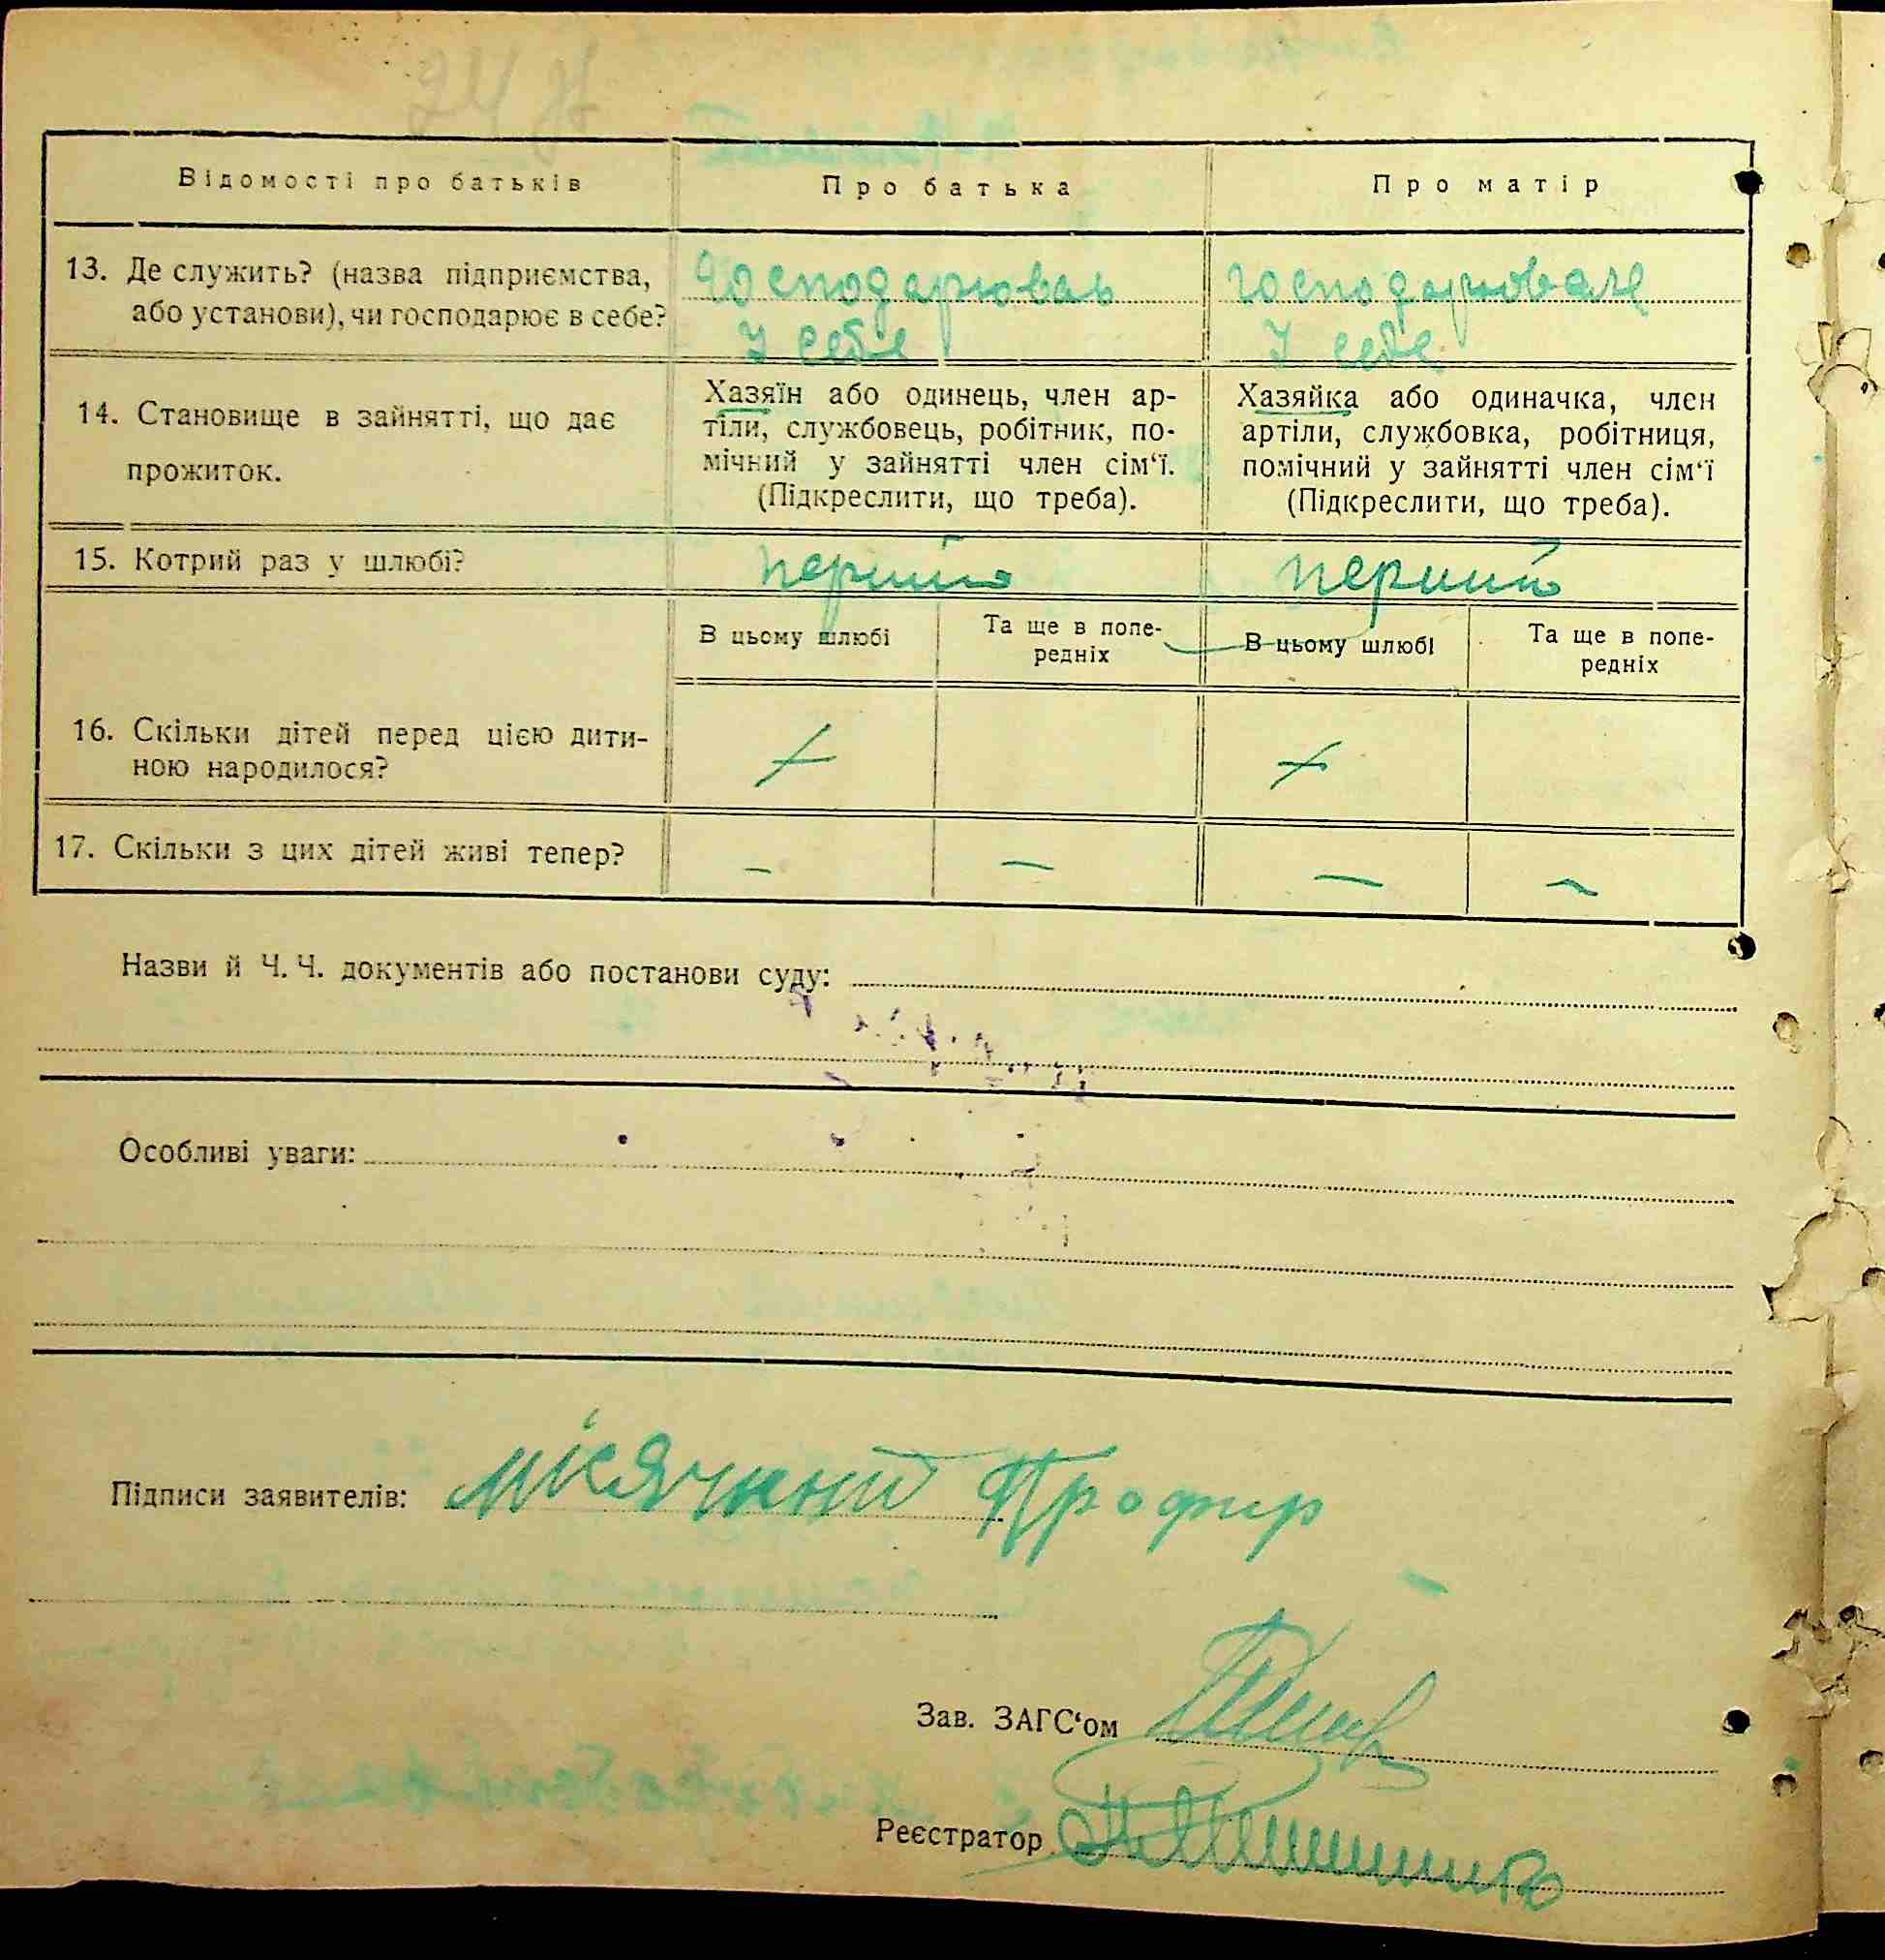 Відомості про батьків
Про батька
Про матір
13. Де служить? (назва підприємства,
або установи), чи господарює в себе?
Господарював
У себе
господарювала
У себе
14. Становище в зайнятті, що дає
прожиток.
Хазяїн або одинець, член ар-
тіли, службовець, робітник, по-
мічний у зайнятті член сім‘ї.
(Підкреслити, що треба).
Хазяйка або одиначка, член
артіли, службовка, робітниця,
помічний у зайнятті член сім‘ї
(Підкреслити, що треба).
15. Котрий раз у шлюбі?
перший
перший
В цьому шлюбі
Та ще в попе-
редніх
В цьому шлюбі
Та ще в попе-
редніх
16. Скільки дітей перед цією дити-
ною народилося?
17. Скільки з цих дітей живі тепер?
–
–
–
–
Назви й Ч. Ч. документів або постанови суду:
Особливі уваги:
Підписи заявителів: Місячний Профир
Зав. ЗАГС‘ом
Реєстратор